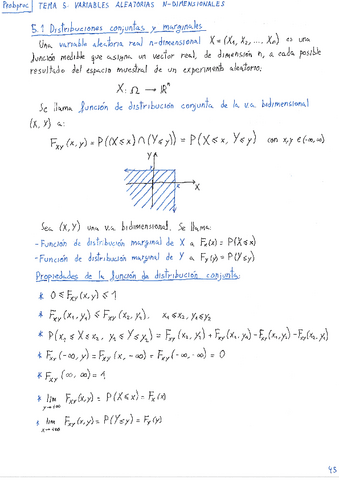 Probproc | TEMA 5: VARIABLES ALEATORIAS N-DIMENSIONALES
5.1 Distribuciones conjuntas y marginales
Una variable aleatoria real n-dimensional X = (X₁, X₂, ..., Xₙ) es una
función medible que asigna un vector real, de dimensión n, a cada posible
resultado del espacio muestral de un experimento aleatorio:
X: Ω → ℝⁿ
Se llama función de distribución conjunta de la v.a. bidimensional
(X, Y) a:
F_XY (x, y) = P((X ≤ x) ∩ (Y ≤ y)) = P(X ≤ x, Y ≤ y) con x,y ∈ (-∞, ∞)
Y
X
Sea (X, Y) una v.a. bidimensional. Se llama:
- Función de distribución marginal de X a F_X(x) = P(X ≤ x)
- Función de distribución marginal de Y a F_Y(y) = P(Y ≤ y)
Propiedades de la función de distribución conjunta:
* 0 ≤ F_XY (x, y) ≤ 1
* F_XY (x₁, y₁) ≤ F_XY (x₂, y₂), x₁ ≤ x₂, y₁ ≤ y₂
* P(x₁ ≤ X ≤ x₂, y₁ ≤ Y ≤ y₂) = F_XY (x₂, y₂) + F_XY (x₁, y₁) - F_XY (x₁, y₂) - F_XY (x₂, y₁)
* F_XY (-∞, y) = F_XY (x, -∞) = F_XY (-∞, -∞) = 0
* F_XY (∞, ∞) = 1
* lim y→+∞ F_XY (x, y) = P(X ≤ x) = F_X (x)
* lim x→+∞ F_XY (x, y) = P(Y ≤ y) = F_Y (y)
45